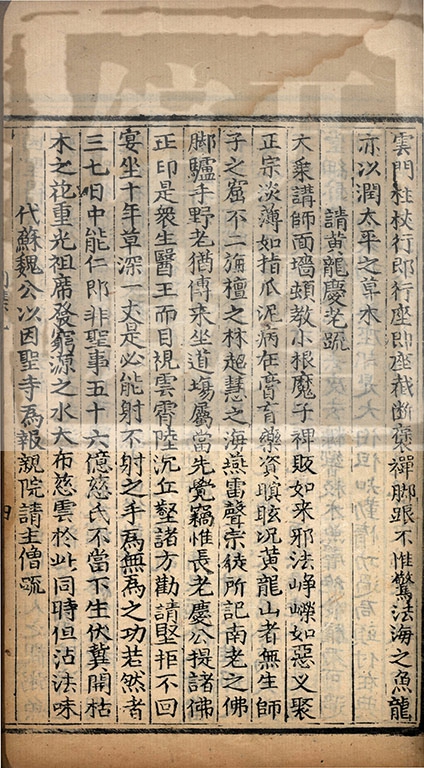 雲門柱杖行即行座即座截斷葛禪脚跟不惟驚法海之魚龍
亦以潤太平之草木
請黃龍慶老䟽
大乗講師面墻頓教小根魔子裨販如来邪法崢嶸如惡义聚
正宗淡薄如指瓜泥病在膏肓藥資瞑眩况黃龍山者無生師
子之窟不二旃檀之林超慧之海燕雷聲宗徒所記南老之佛
脚驢手野老猶傳来坐道塲屬當先覺竊惟長老慶公提諸佛
正印是衆生醫王而目視雲霄陸沉丘壑諸方勸請堅拒不回
宴坐十年草深一丈是必能射不射之手為無為之功若然者
三七日中能仁即非聖事五十六億慈氏不當下生伏冀開枯
木之花重光祖席發窮源之水大布慈雲於此同時但沾法味
代蘇魏公以因聖寺為報親院請主僧䟽